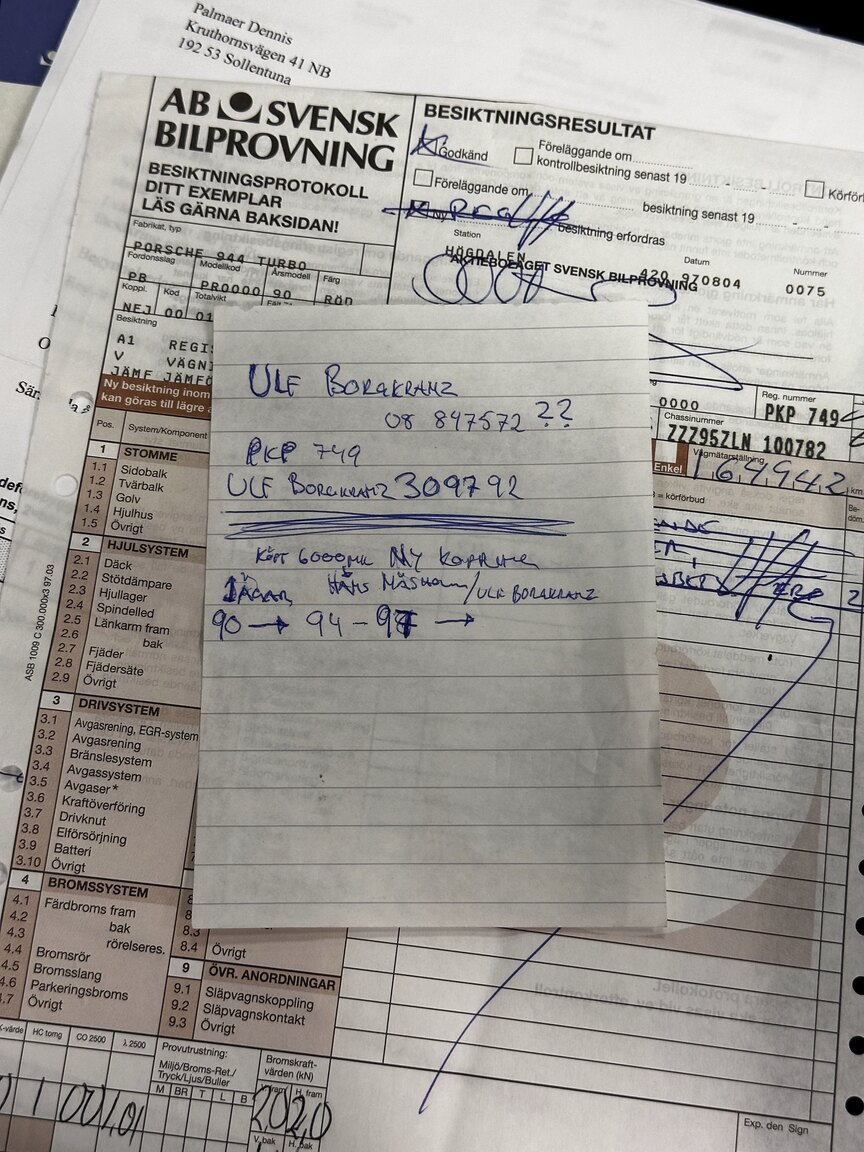 Palmaer Dennis
Kruthornsvägen 41 NB
192 53 Sollentuna
AB SVENSK
BILPROVNING
BESIKTNINGSPROTOKOLL
DITT EXEMPLAR
LÄS GÄRNA BAKSIDAN!
BESIKTNINGSRESULTAT
Godkänd
Föreläggande om
kontrollbesiktning senast 19
Körför
Föreläggande om
besiktning senast 19
besiktning erfordras
Station
Datum
Nummer
HÖGDALEN
420 970804
0075
AKTIEBOLAGET SVENSK BILPROVNING
Fabrikat, typ
PORSCHE 944 TURBO
Fordonsslag
Modellkod
Årsmodell
Färg
PB
PR0000
90
RÖD
Koppl.
Kod
Totalvikt
NEJ 00 01
Besiktning
A1 REGIS
V VÄGNI
JÄMF JÄMFÖ
Ny besiktning inom
kan göras till lägre
0000
Reg. nummer
PKP 749
Chassinummer
ZZZ95ZLN 100782
Enkel
Vägmätarställning
164942 km
= körförbud
Be-
döm
ULF BORGKRANZ
08 847572 ??
PKP 749
ULF BORGKRANZ 309792
KÖRT 6000 MIL NY KOPPLING
1 ÄGARE
/ULF BORGKRANZ
90 → 94 - 97 →
Pos.
System/Komponent
1 STOMME
1.1 Sidobalk
1.2 Tvärbalk
1.3 Golv
1.4 Hjulhus
1.5 Övrigt
2 HJULSYSTEM
2.1 Däck
2.2 Stötdämpare
2.3 Hjullager
2.4 Spindelled
2.5 Länkarm fram
2.6 bak
2.7 Fjäder
2.8 Fjädersäte
2.9 Övrigt
3 DRIVSYSTEM
3.1 Avgasrening, EGR-system
3.2 Avgasrening
3.3 Bränslesystem
3.4 Avgassystem
3.5 Avgaser*
3.6 Kraftöverföring
3.7 Drivknut
3.8 Elförsörjning
3.9 Batteri
3.10 Övrigt
4 BROMSSYSTEM
4.1 Färdbroms fram
4.2 bak
4.3 rörelseres.
4.4 Bromsrör
4.5 Bromsslang
4.6 Parkeringsbroms
4.7 Övrigt
8.3
8.4 Övrigt
9 ÖVR. ANORDNINGAR
9.1 Släpvagnskoppling
9.2 Släpvagnskontakt
9.3 Övrigt
ASB 1009 C 300.000x3 97.03
HC tomg
CO 2500
λ 2500
Provutrustning:
Miljö/Broms-Ret./
Tryck/Ljus/Buller
M BR T L B
Bromskraft-
värden (kN)
H. fram
2,0 2,0
V. bak
H. bak
Exp. den
Sign